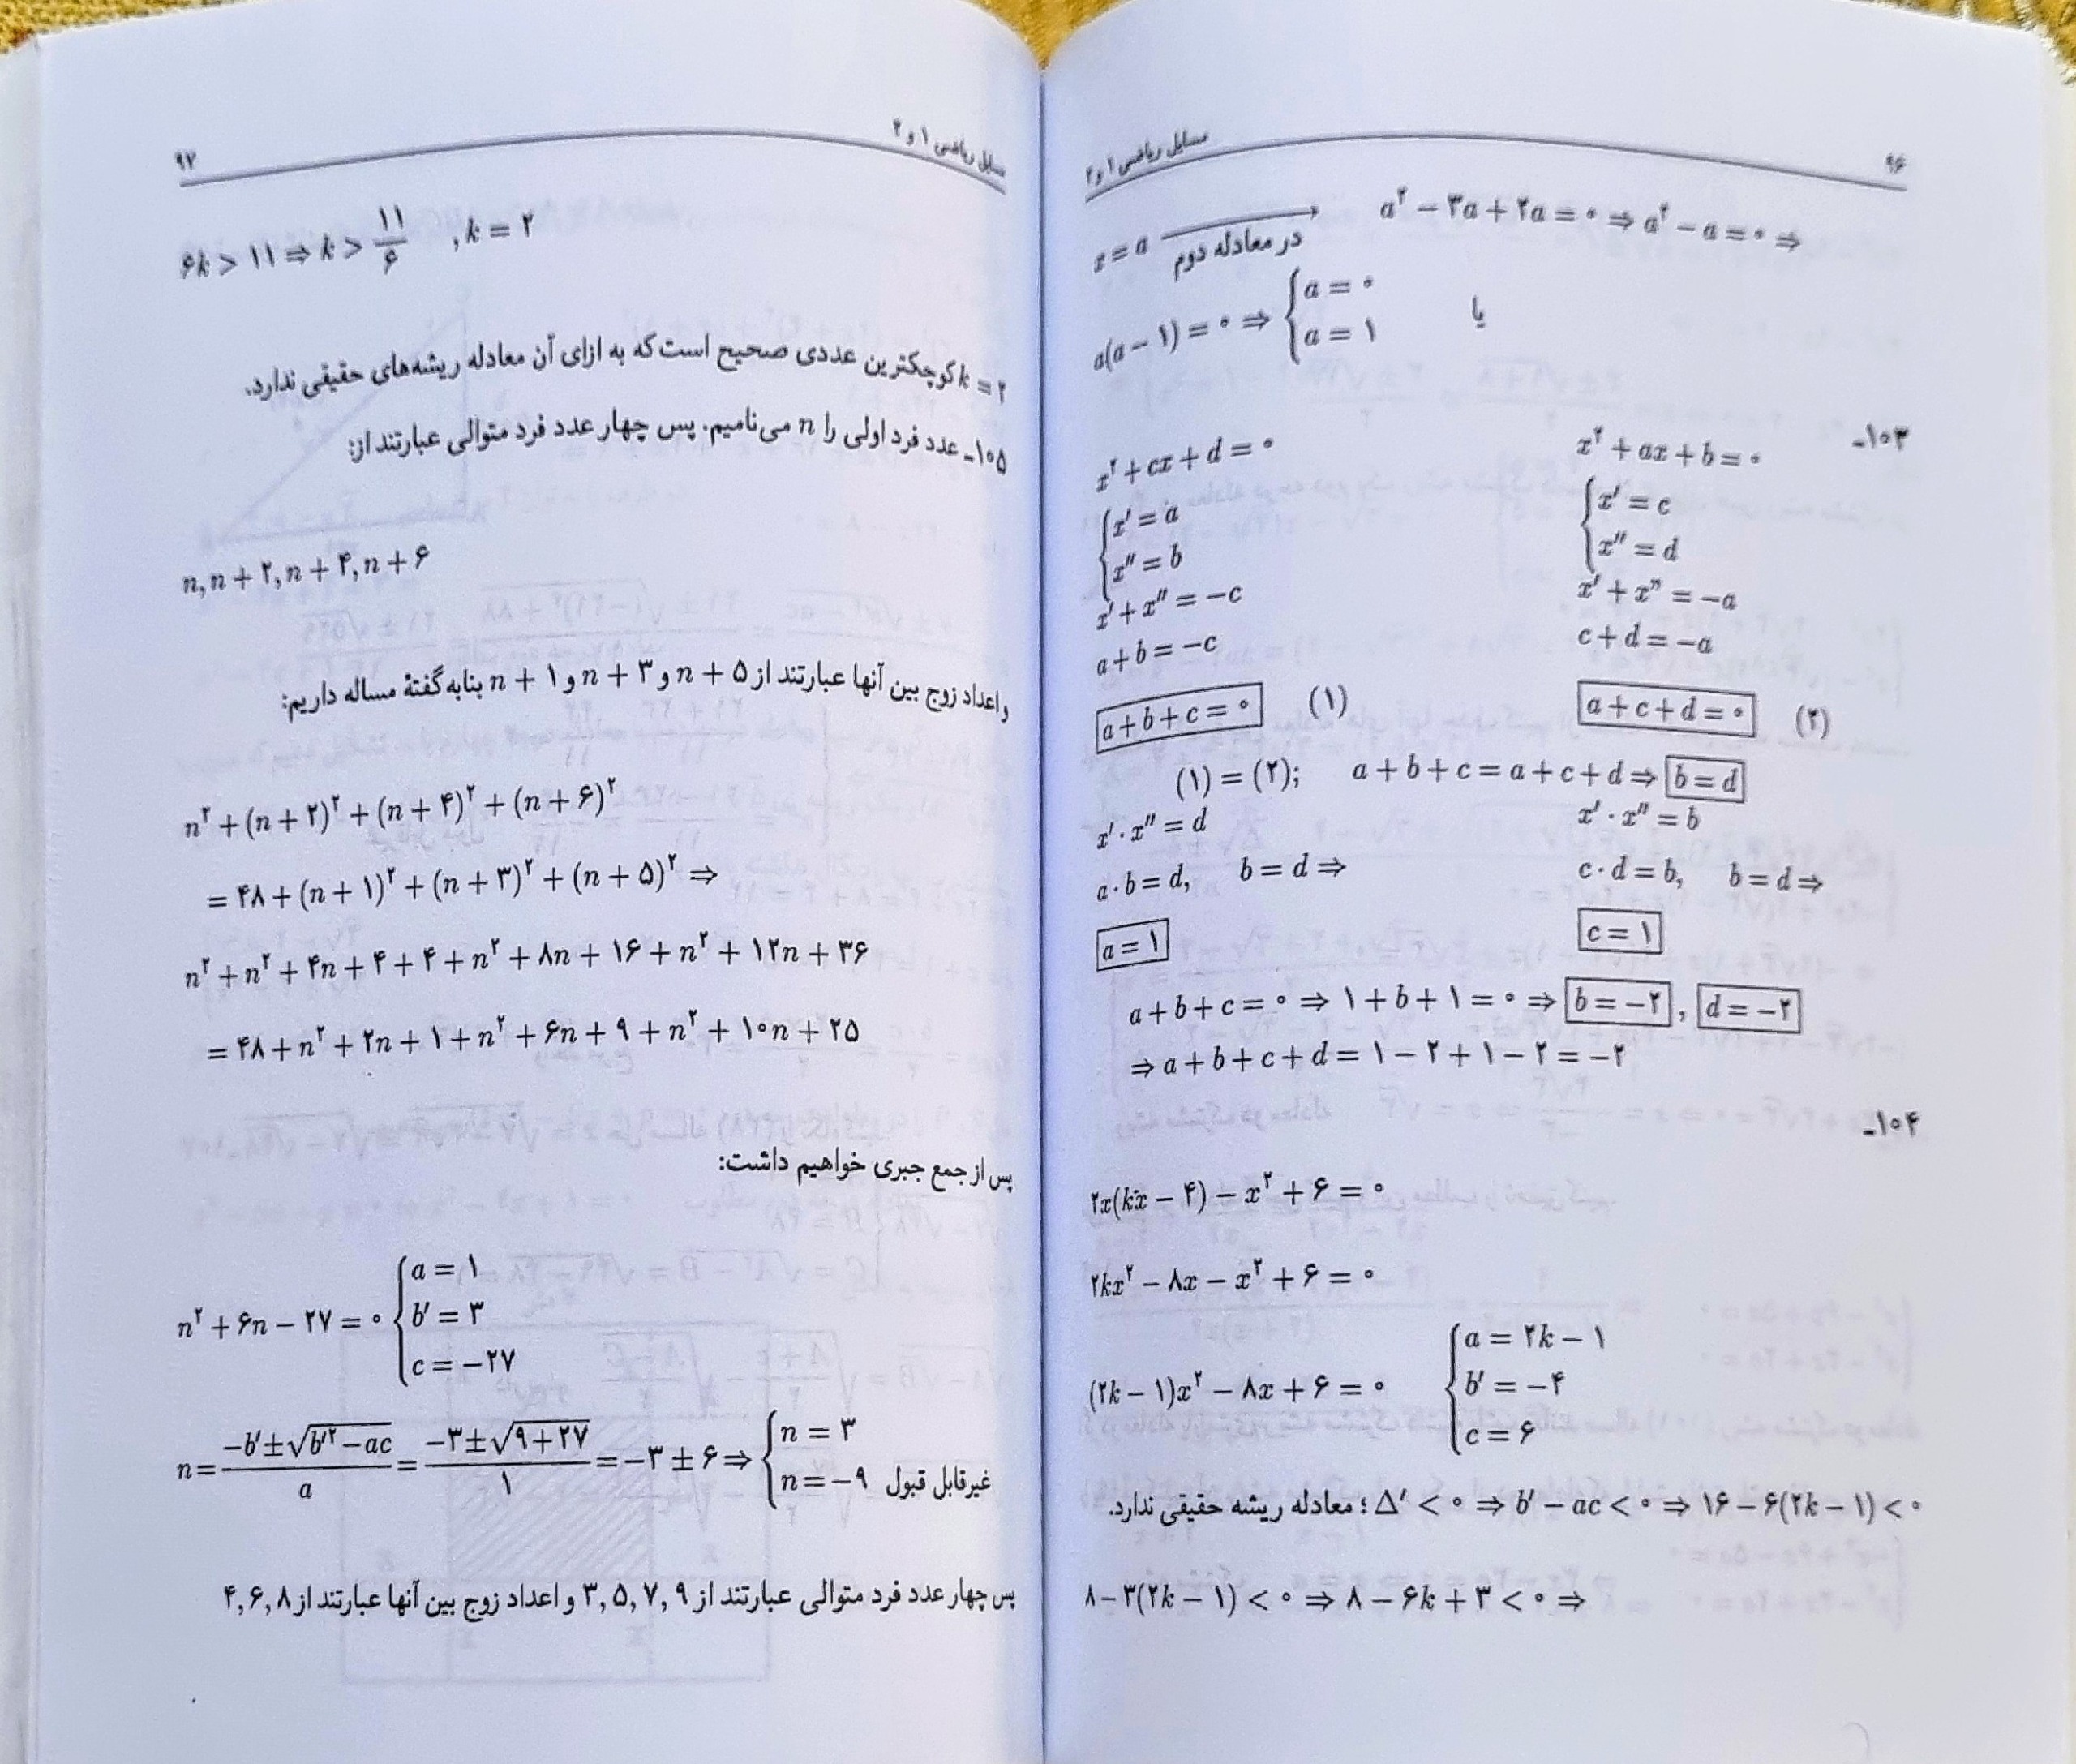 ۹۶ مسایل ریاضی ۱ و ۲
x = a در معادله دوم → a² − ۳a + ۲a = ۰ ⇒ a² − a = ۰ ⇒
a(a − ۱) = ۰ ⇒ { a = ۰ یا
a = ۱
۱۰۳ـ
x² + cx + d = ۰ x² + ax + b = ۰
{ x′ = a { x′ = c
x″ = b x″ = d
x′ + x″ = −c x′ + x″ = −a
a + b = −c c + d = −a
a + b + c = ۰ (۱) a + c + d = ۰ (۲)
(۱) = (۲); a + b + c = a + c + d ⇒ b = d
x′ · x″ = d x′ · x″ = b
a · b = d, b = d ⇒ c · d = b, b = d ⇒
a = ۱ c = ۱
a + b + c = ۰ ⇒ ۱ + b + ۱ = ۰ ⇒ b = −۲ , d = −۲
⇒ a + b + c + d = ۱ − ۲ + ۱ − ۲ = −۲
۱۰۴ـ
۲x(kx − ۴) − x² + ۶ = ۰
۲kx² − ۸x − x² + ۶ = ۰
(۲k − ۱)x² − ۸x + ۶ = ۰ { a = ۲k − ۱
b′ = −۴
c = ۶
معادله ریشه حقیقی ندارد. ؛ Δ′ < ۰ ⇒ b′ − ac < ۰ ⇒ ۱۶ − ۶(۲k − ۱) < ۰
۸ − ۳(۲k − ۱) < ۰ ⇒ ۸ − ۶k + ۳ < ۰ ⇒
مسایل ریاضی ۱ و ۲ ۹۷
۶k > ۱۱ ⇒ k > ۱۱/۶ , k = ۲
k = ۲ کوچکترین عددی صحیح است که به ازای آن معادله ریشه‌های حقیقی ندارد.
۱۰۵ـ عدد فرد اولی را n می‌نامیم. پس چهار عدد فرد متوالی عبارتند از:
n, n + ۲, n + ۴, n + ۶
و اعداد زوج بین آنها عبارتند از n + ۵ و n + ۳ و n + ۱ بنابه گفتهٔ مساله داریم:
n² + (n + ۲)² + (n + ۴)² + (n + ۶)²
= ۴۸ + (n + ۱)² + (n + ۳)² + (n + ۵)² ⇒
n² + n² + ۴n + ۴ + ۴ + n² + ۸n + ۱۶ + n² + ۱۲n + ۳۶
= ۴۸ + n² + ۲n + ۱ + n² + ۶n + ۹ + n² + ۱۰n + ۲۵
پس از جمع جبری خواهیم داشت:
n² + ۶n − ۲۷ = ۰ { a = ۱
b′ = ۳
c = −۲۷
n = (−b′ ± √(b′² − ac))/a = (−۳ ± √(۹ + ۲۷))/۱ = −۳ ± ۶ ⇒ { n = ۳
n = −۹ غیرقابل قبول
پس چهار عدد فرد متوالی عبارتند از ۳, ۵, ۷, ۹ و اعداد زوج بین آنها عبارتند از ۴, ۶, ۸